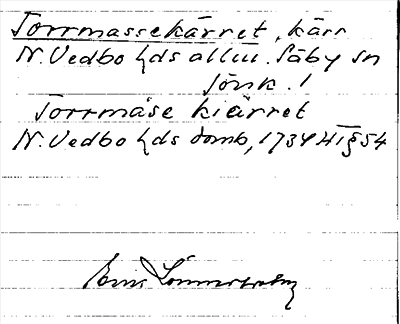 Torrmassekärret, kärr
N. Vedbo hds allm. Säby sn
Jönk. l
Torrmåse kiärret
N. Vedbo hds domb, 1734 4/1 § 54